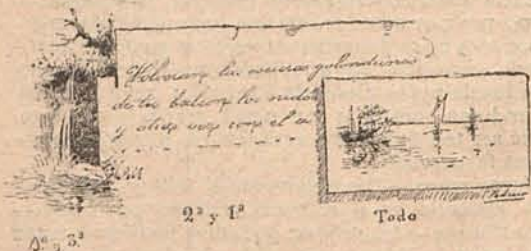 Volverán las oscuras golondrinas
de tu balcon los nidos
y otra vez con el a
2ª y 1ª
Todo
3ª